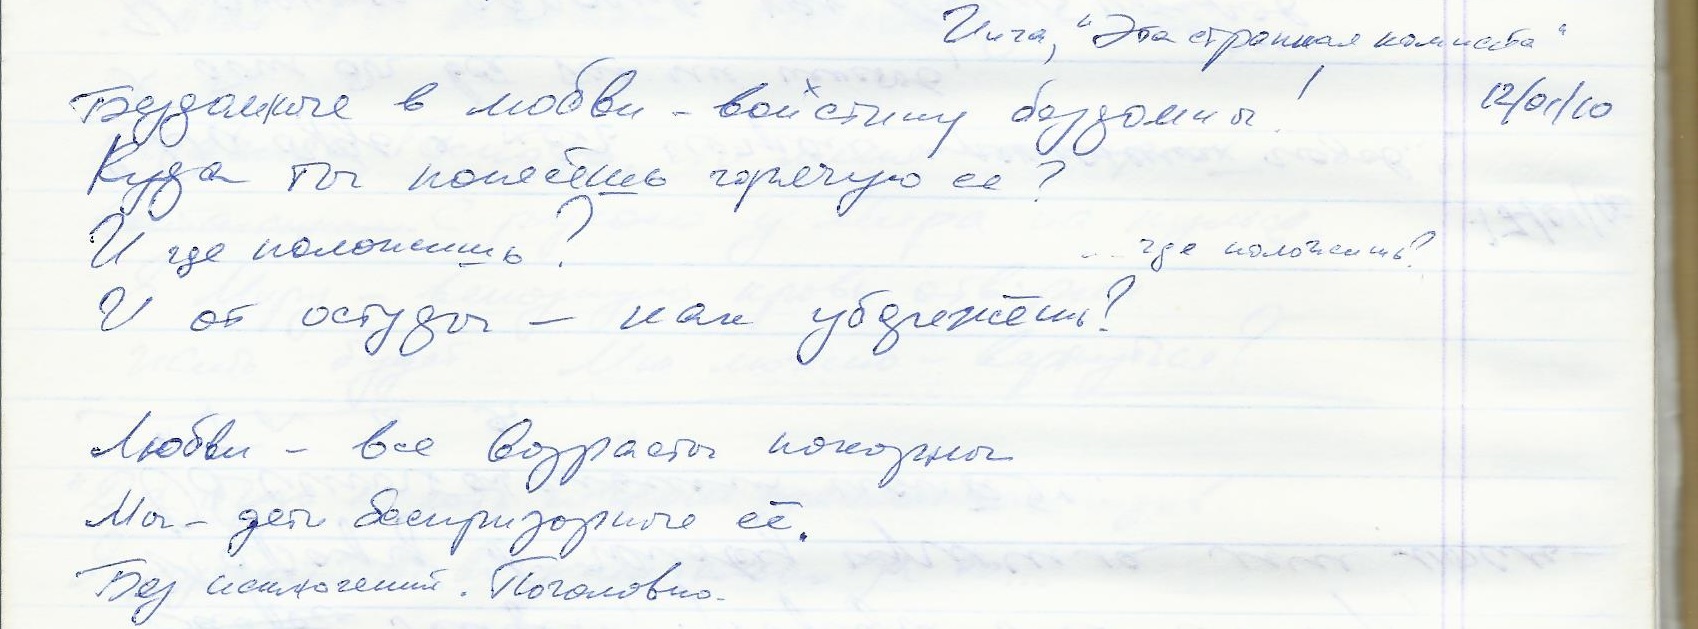 "Эта странная
12/01/10
Бездомные в любви - воистину бездомны!
Куда ты понесёшь горячую ее?
И где положишь?
... где положишь?
И от остуды - как убережёшь?
Любви - все возрасты покорны
Мы - дети беспризорные её.
Без исключений. Поголовно.